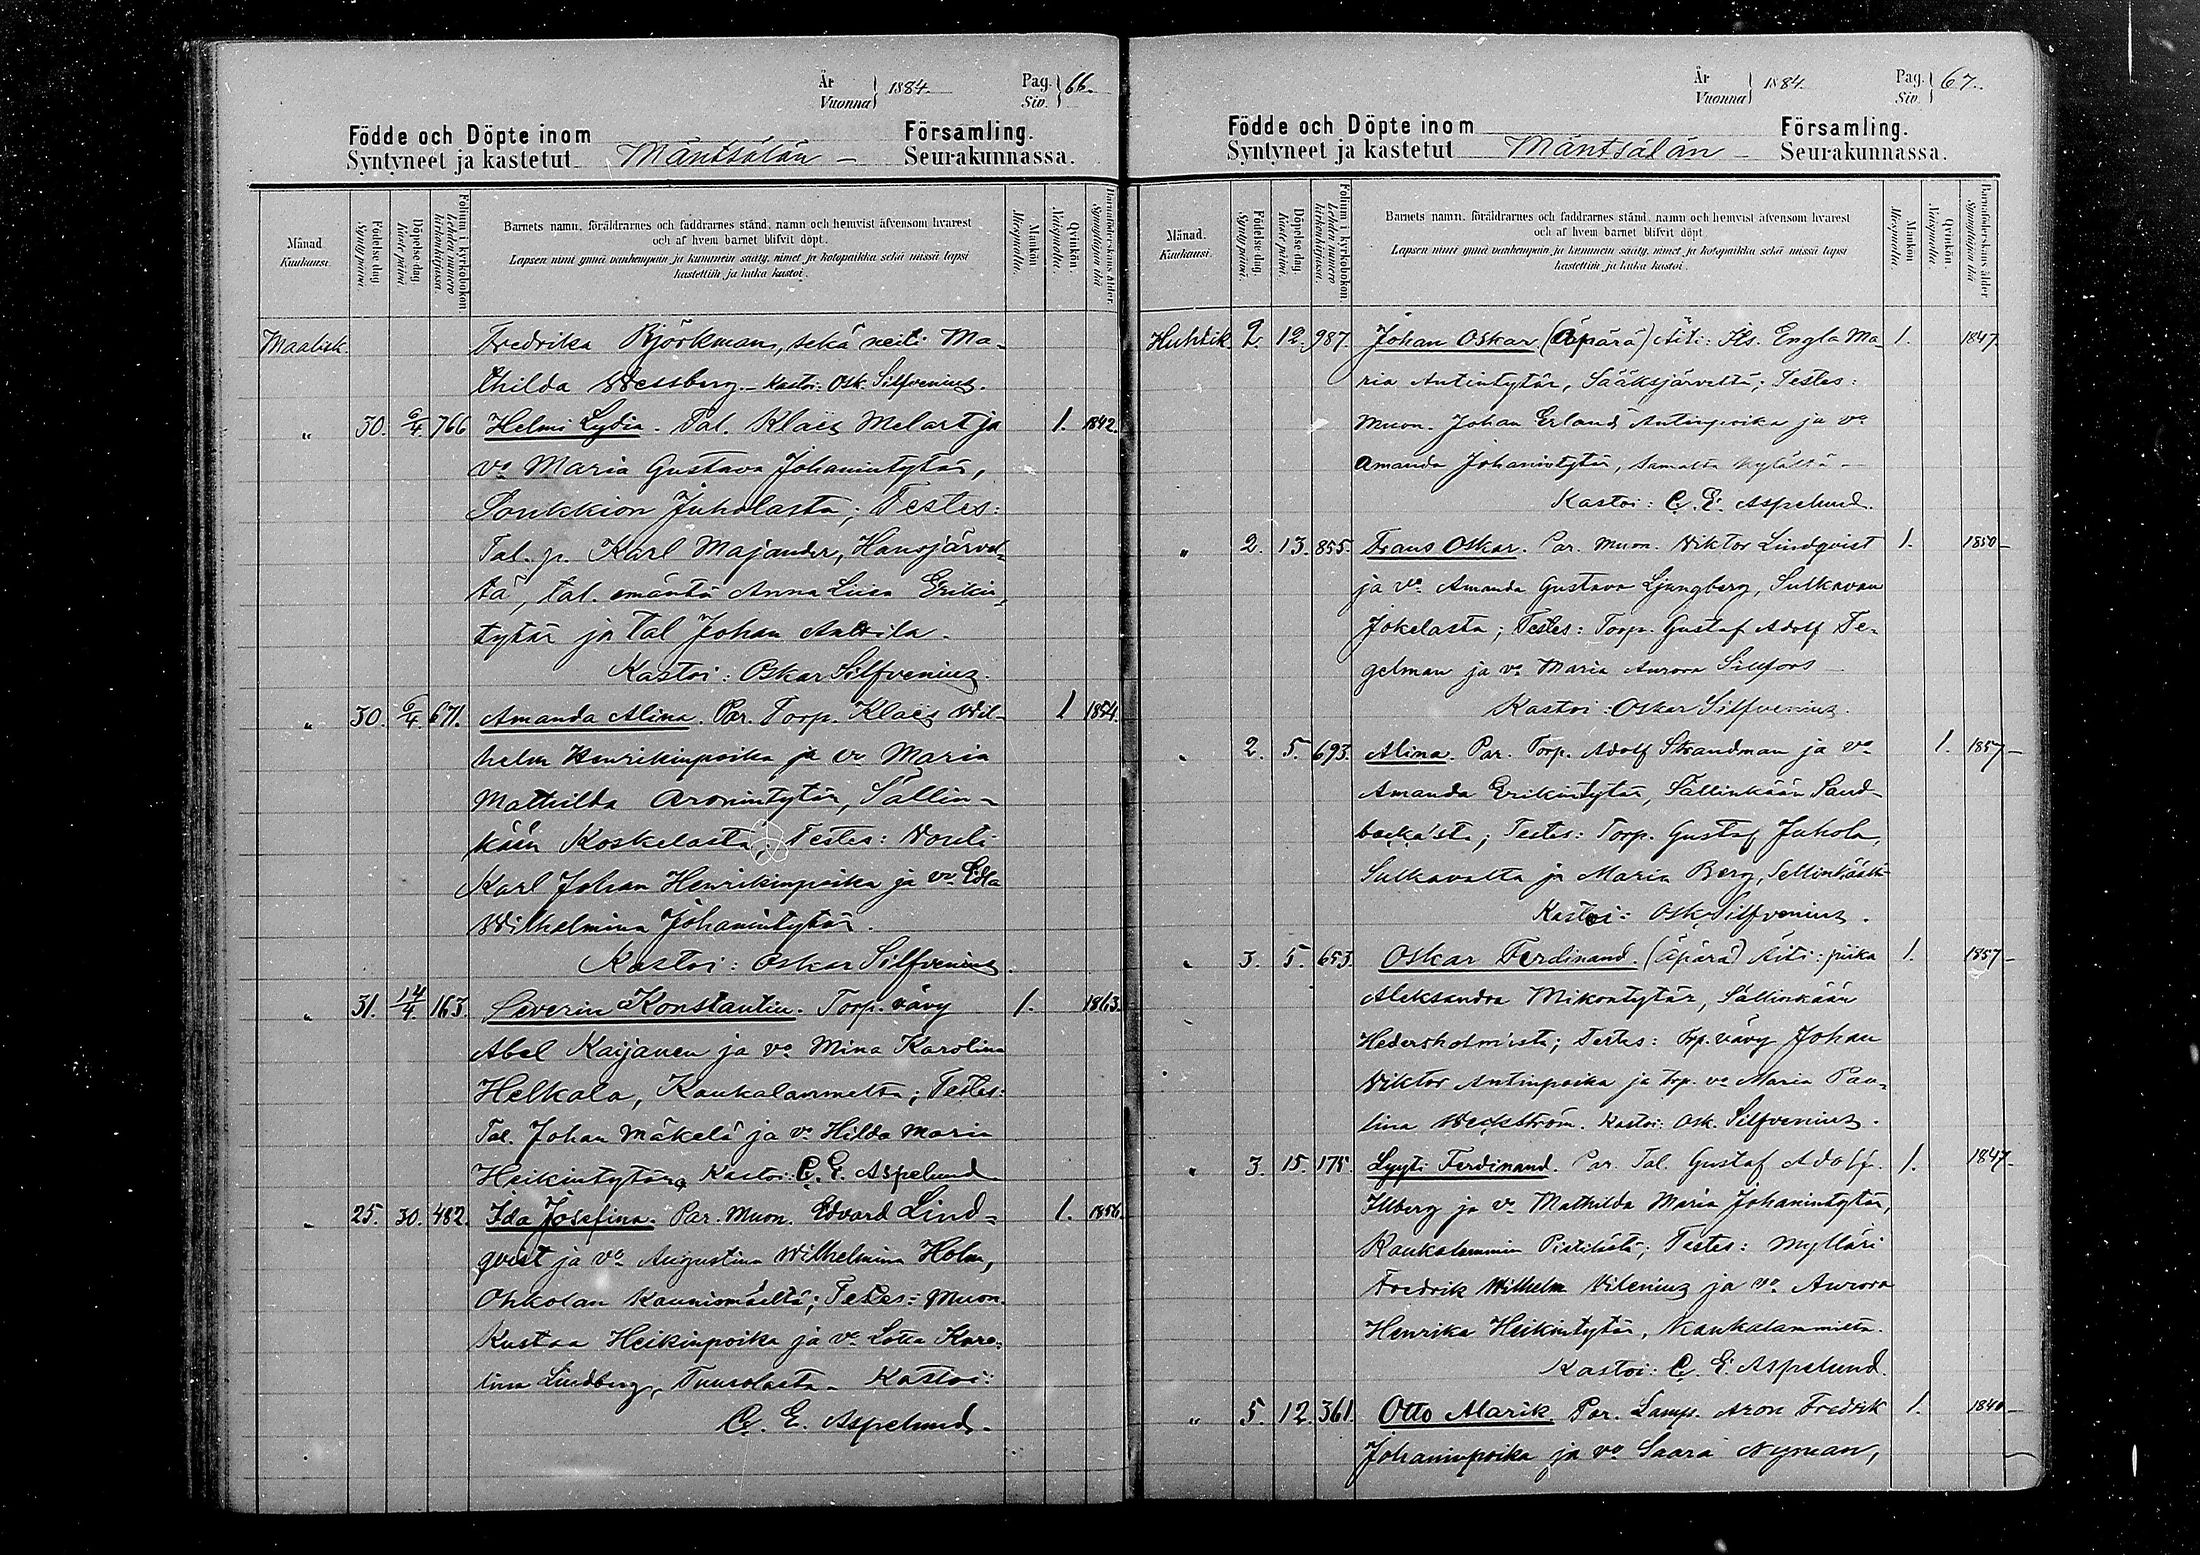 År
Vuonna
1884.
Pag.
Siv.
66.
Födde och Döpte inom
Församling.
Syntyneet ja kastetut
Mäntsälän
Seurakunnassa.
Månad
Kuukausi.
Födelse dag.
Syntypäivä.
Döpelse dag.
Kaste päivä
Folium i kyrkoboken.
Lehden numero kirkonkirjassa.
Barnets namn, föräldrarnes och faddrarnes stånd, namn och hemvist äfvensom hvarest
och af hvem barnet blifvit döpt.
Lapsen nimi ynnä vanhempain ja kummein sääty, nimet ja kotopaikka sekä missä lapsi
kastettiin ja kuka kastoi.
Mankön.
Miespuolia.
Qvinkön.
Naispuolia.
Barnaföderskans ålder
Synnyttäjän ikä
Maalisk Fredrika Björkman, sekä neiti Ma-
thilda Wessberg. – Kastoi: Osk. Silfvenius.
„ 30. 6/4 766 Helmi Lydia. Tal. Klaës Melart ja 1. 1842.
vo Maria Gustava Johanintytär,
Soukkion Juholasta; Testes:
Tal. p. Karl Majander, Hausjärvel-
tä, tal. emäntä Anna Liisa Erikin-
tytär ja Tal Johan Anttila.
Kastoi: Oskar Silfvenius.
„ 30. 6/4 671. Amanda Alina. Par. Torp. Klaës Wil- 1 1854.
helm Henrikinpoika ja vo Maria
Mathilda Aronintytär, Sällin-
kään Koskelasta; Testes: Vouti
Karl Johan Henrikinpoika ja vo Edla
Wilhelmina Johanintytär.
Kastoi: Oskar Silfvenius.
„ 31. 14/4. 163. Severin Konstantin. Torp. vävy 1. 1863.
Abel Kaijanen ja vo Mina Karolina
Helkala, Kaukalammelta; Testes:
Tal. Johan Mäkelä ja vo Hilda Maria
Heikintytär, Kastoi: C. E. Aspelund
„ 25. 30. 482. Ida Josefina. Par. Muon. Edvard Lind- 1. 1856.
qvist ja vo Augustina Wilhelmina Holm,
Ohkolan Kaunismäeltä; Testes: Muon.
Kustaa Heikinpoika ja vo Lotta Karo-
lina Lindberg, Tuurolasta – Kastoi:
C. E. Aspelund.
År
Vuonna
1884.
Pag.
Siv.
67.
Födde och Döpte inom
Församling.
Syntyneet ja kastetut
Mäntsälän
Seurakunnassa.
Månad.
Kuukausi.
Födelse dag.
Syntypäivä.
Döpelse dag.
Kaste päivä.
Folium i kyrkoboken.
Lehden numero kirkonkirjassa.
Barnets namn, föräldrarnes och faddrarnes stånd, namn och hemvist äfvensom hvarest
och af hvem barnet blifvit döpt.
Lapsen nimi ynnä vanhempain ja kummein sääty, nimet ja kotopaikka sekä missä lapsi
kastettiin ja kuka kastoi.
Mankön.
Miespuolia.
Qvinkön.
Naispuolia.
Barnaföderskans ålder
Synnyttäjän ikä
Huhtik 2. 12. 987. Johan Oskar (Äpärä) Äiti: Its. Engla Ma- 1. 1847.
ria Antintytär, Sääksjärveltä; Testes:
Muon. Johan Erland Antinpoika ja vo
Amanda Johanintytär, samalta kylältä –
Kastoi: C. E. Aspelund.
„ 2. 13. 855. Frans Oskar. Par. Muon. Viktor Lindqvist 1. 1850
ja vo Amanda Gustava Ljungberg, Sulkavan
Jokelasta; Testes: Torp. Gustaf Adolf Te-
gelman ja vo Maria Aurora Silfors
Kastoi: Oskar Silfvenius.
„ 2. 5. 693. Alina. Par. Torp. Adolf Strandman ja vo 1. 1857
Amanda Erikintytär, Sällinkään Sand-
backa'sta; Testes: Torp. Gustaf Juhola,
Sulkavalta ja Maria Berg, Sellinkäältä
Kastoi: Osk. Silfvenius.
„ 3. 5. 653. Oskar Ferdinand. (Äpärä) Äiti: piika 1. 1857
Aleksandra Mikontytär, Sällinkään
Hedersholmista; Testes: Trp. vävy Johan
Viktor Antinpoika ja trp. vo Maria Pau-
lina Weckström. Kastoi: Osk. Silfvenius.
„ 3. 15. 175. Lyyti Ferdinand. Par. Tal. Gustaf Adolf 1. 1847
Illberg ja vo Mathilda Maria Johanintytär,
Kaukalammin Pietilästä; Testes: Mylläri
Fredrik Wilhelm Vilenius ja vo Aurora
Henrika Heikintytär, Kaukalammilta.
Kastoi: C. E. Aspelund.
„ 5. 12. 361. Otto Alarik Par. Lamp. Aron Fredrik 1. 1840
Johaninpoika ja vo Saara Nyman,